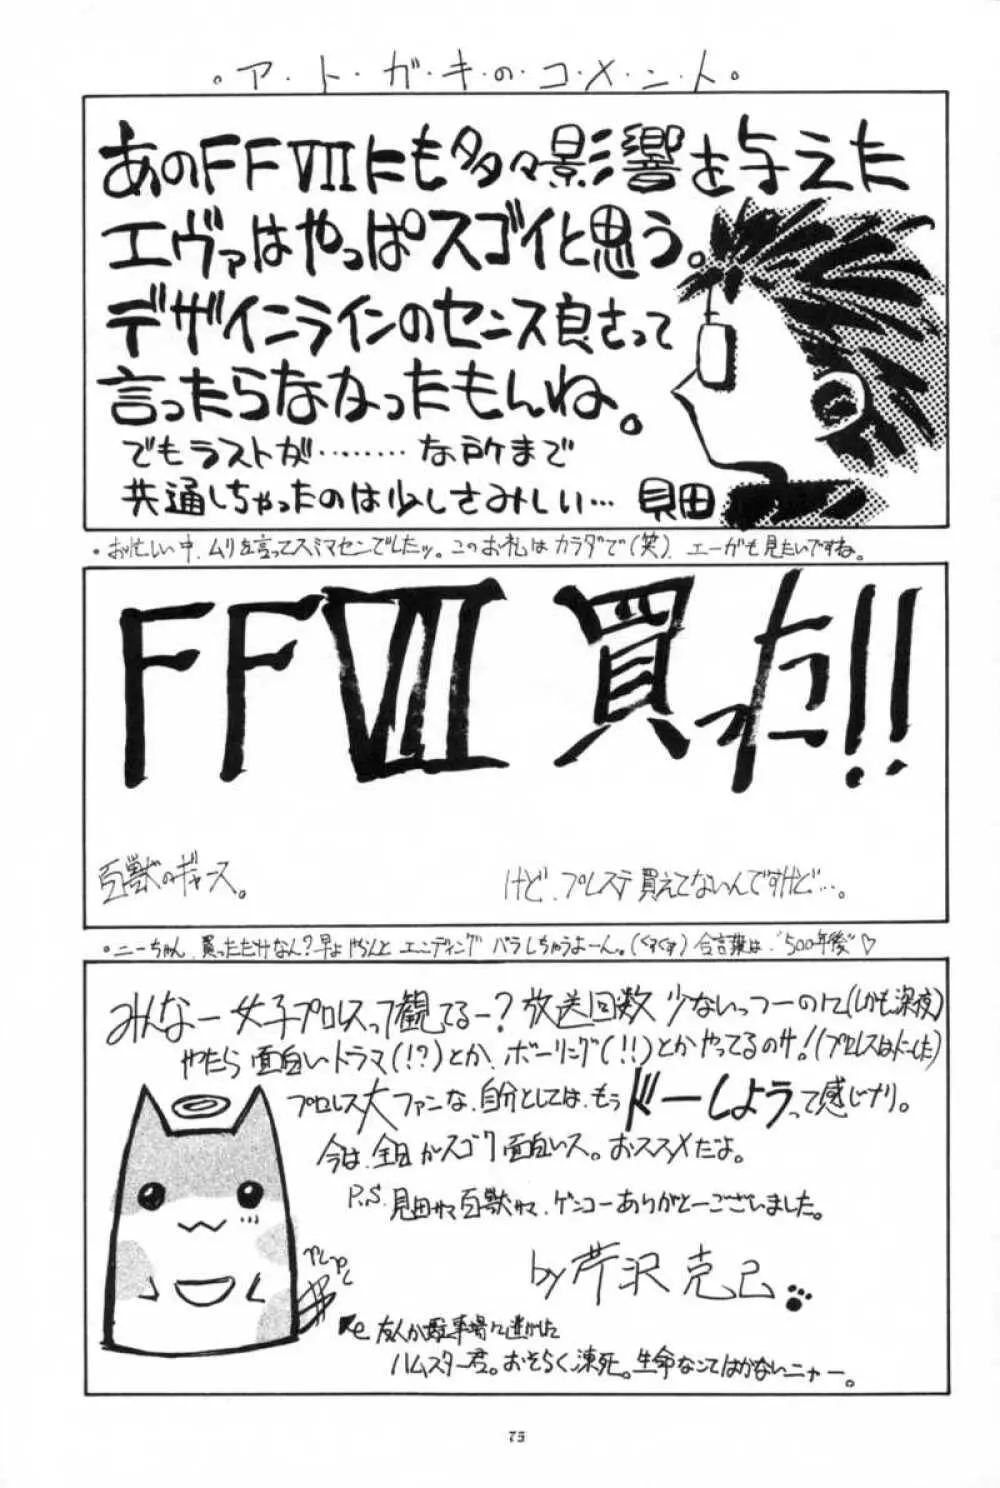 。ア・ト・ガ・キ・の・コ・メ・ン・ト。
あのFFⅦにも多々影響を与えた
エヴァはやっぱスゴイと思う。
デザインラインのセンス良さって
言ったらなかったもんね。
でもラストが………な所まで
共通しちゃったのは少しさみしい… 貝田
・お忙しい中、ムリを言ってスミマセンでしたッ。このお礼はカラダで(笑)、エーガも見たいですね。
FFⅦ 買った!!
百獣のギャース。
けど、プレステ買えてないんですけど…。
・ニーちゃん、買っただけなん?早よやらんと エンディング バラしちゃうよーん。(くすくす) 合言葉は、"500年後"♡
みんなー女子プロレスって観てるー?放送回数 少ないっつーのに(しかも深夜)
やたら面白いドラマ(!?)とか、ボーリング(!!)とかやってるのサ!(プロレスはどーした)
プロレス大ファンな、自分としては、もう ドーしようって感じナリ。
今は、全日がスゴク面白いス。おススメだよ。
P.S. 貝田サマ 百獣サマ、ゲンコーありがとーございました。
by 芹沢 克己
友人が駐車場に逃がした
ハムスター君。おそらく凍死。生命なんてはかないニャー。
75